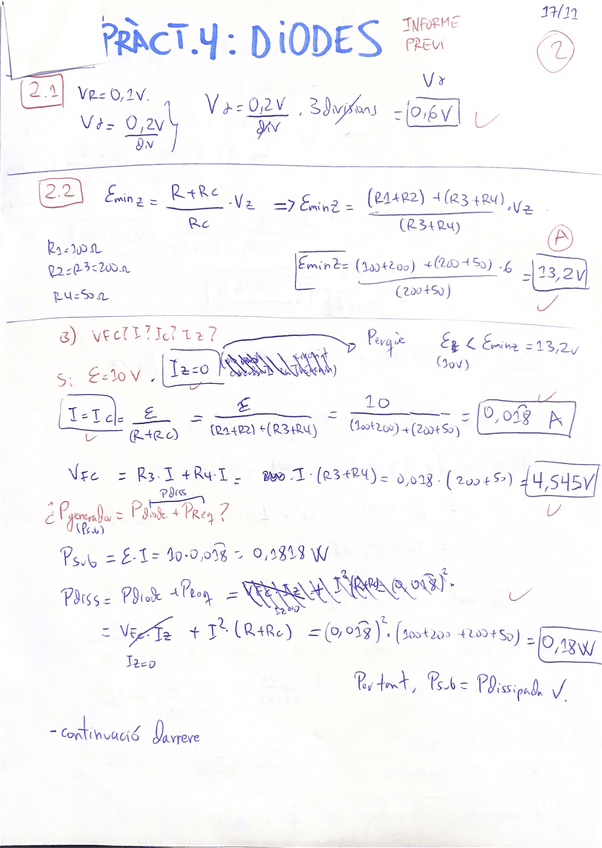 17/11
PRÀCT.4: DIODES
INFORME
PREVI
2
2.1 VR=0,1V.
Vγ = 0,2V/div
Vγ = 0,2V/div · 3 divisions = 0,6V
Vγ
2.2 Eminz = R+Rc/Rc · Vz => Eminz = (R1+R2)+(R3+R4)/(R3+R4) · Vz
R1=100Ω
R2=R3=200Ω
R4=50Ω
A
Eminz = (100+200)+(200+50)/(200+50) · 6 = 13,2V
3) VFC? I? Ic? Iz?
Si E=10V. Iz=0 Perquè E < Eminz = 13,2V
(10V)
I = Ic = E/(R+Rc) = E/(R1+R2)+(R3+R4) = 10/(100+200)+(200+50) = 0,018 A
VFC = R3·I + R4·I = I·(R3+R4) = 0,018·(200+50) = 4,545V
Pdiss
¿Pgenerador = Pdiode + PReq?
(Psub)
Psub = E·I = 10·0,018 = 0,1818W
Pdiss = Pdiode + PReq =
= VFC·Iz + I²·(R+Rc) = (0,018)²·(100+200+200+50) = 0,18W
Iz=0
Per tant, Psub = Pdissipada √.
- continuació darrere